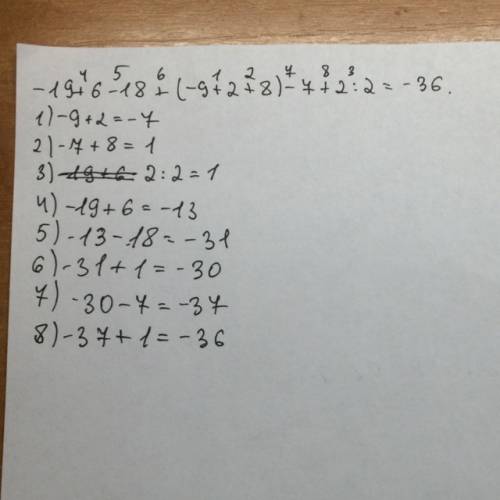 4 5 6 1 2 7 8 3
-19+6-18+(-9+2+8)-7+2:2=-36.
1)-9+2=-7
2)-7+8=1
3) -19+6= 2:2=1
4) -19+6=-13
5) -13-18=-31
6)-31+1=-30
7) -30-7=-37
8)-37+1=-36